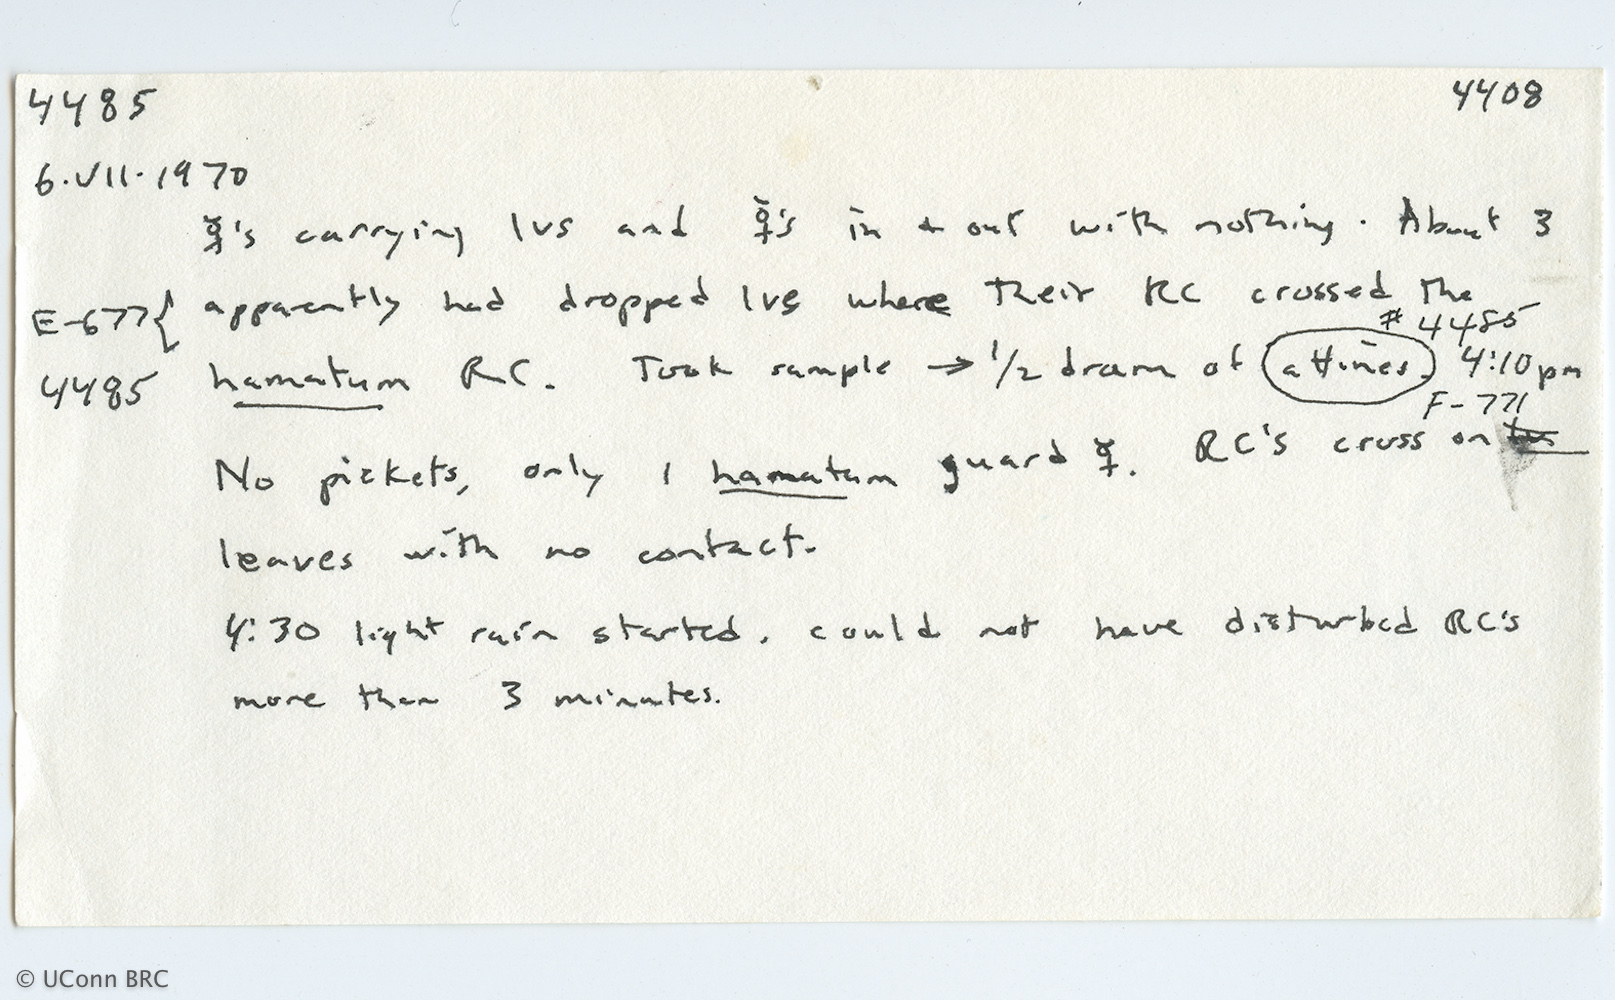 4485 4408
6.VII.1970
☿'s carrying lvs and ☿'s in + out with nothing. About 3
E-677{ apparently had dropped lvs where their RC crossed the
# 4485
4485 hamatum RC. Took sample → 1/2 dram of attines. 4:10 pm
F-771
No pickets, only 1 hamatum guard ☿. RC's cross on
leaves with no contact.
4:30 light rain started. could not have disturbed RC's
more than 3 minutes.
© UConn BRC